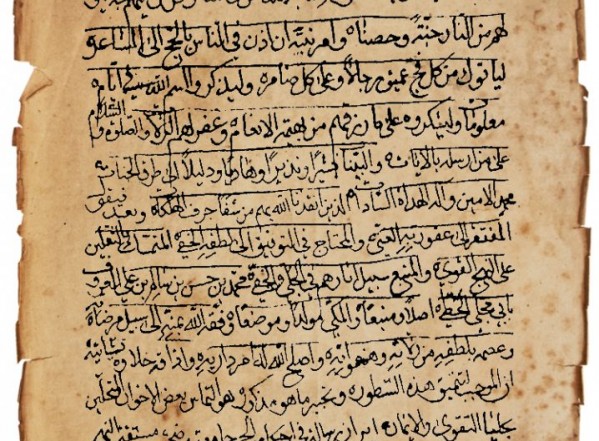 لهم من النار جنّةً وحصناه وامر نبيّه ان اذن في الناس بالحج الى المشاعر
لياتوك من كل فج عميق رجالاً وعلى كل ضامره وليذكروا اسم الله في ايّام
معلومات وليشكروه على ما رزقهم من بهيمة الانعام وغفر لهم الزلل والصلوة والسّلام
على من ارسله بالايات والبيّنات بشيراً ونذيراً وهادياً ودليلاً الى طرق الجنات
محمد الامين وآله الهداة السادات الذين انقذنا الله بهم من شفا جرف الهلكات وبعد فيقول
المفتقر الى عفو ربه الغني والمحتاج في التوفيق الى لطفه الخفي المتمسك بالثقلين
على النهج القوي والمتبع سبيل آثارهم في الجلي والخفي محمد بن حسن بن سالم بن علي المعروف
بابي مجلي الخطي اصلاً ومنبعاً والمكي مولداً وموضعاً وفقه الله عبيده الى سبيل مرضاته
وعصمه بلطفه من زلاته وهفواته واصلح الله له امر داريه واذاقه حلاوة
ان الموجب لتنميق هذه السطور وتحبير ما هو مذكور هو التماس بعض الاخوان المتحلين
بحلية التقوى والايمان